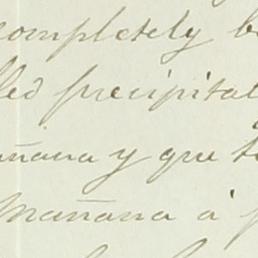 completely b
led precipital
añana y que t
Mañana a p